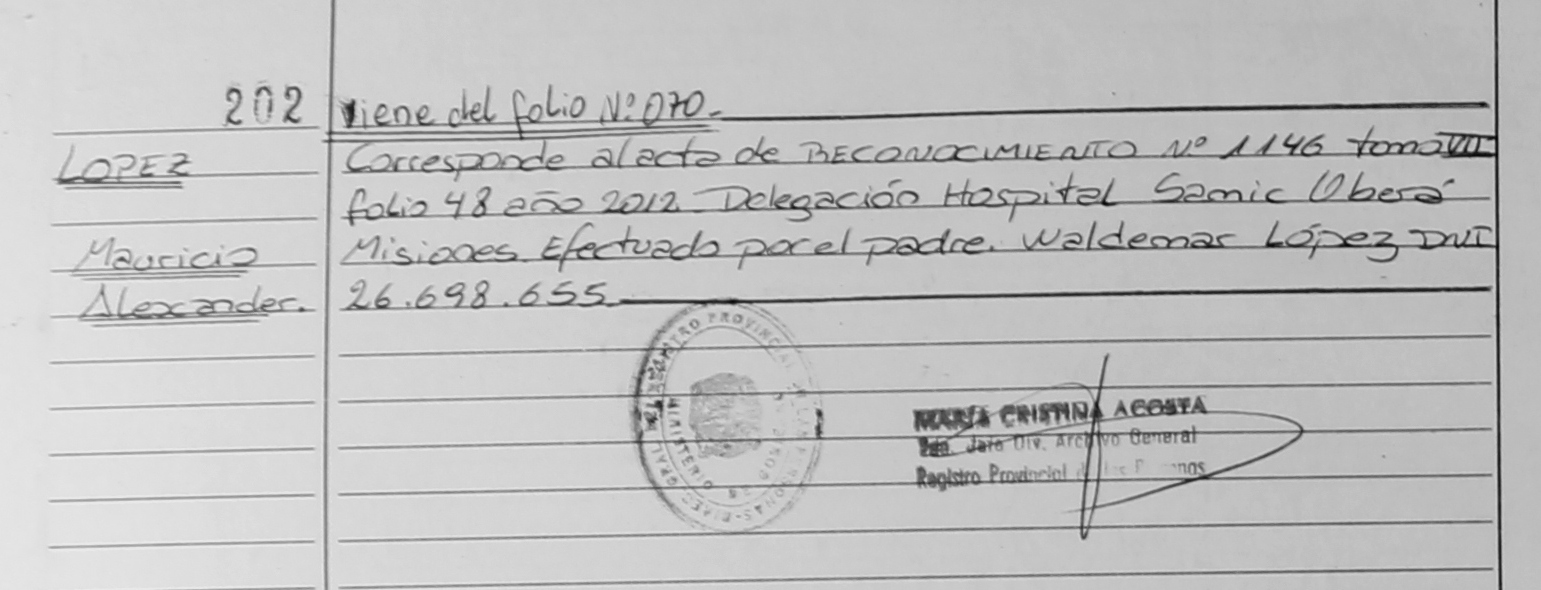 202 Viene del folio Nº 070.
LOPEZ
Corresponde al acta de RECONOCIMIENTO Nº 1146 tomo VII
folio 48 año 2012 Delegación Hospital Samic Oberá
Mauricio
Misiones. Efectuado por el padre. Waldemar López DNI
Alexander.
26.698.655
REGISTRO PROVINCIAL DE LAS PERSONAS
MINISTERIO
MARÍA CRISTINA ACOSTA
Div. Archivo General
Registro Provincial